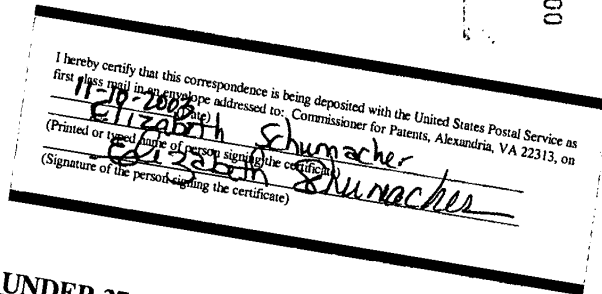 00
I hereby certify that this correspondence is being deposited with the United States Postal Service as
first class mail in an envelope addressed to: Commissioner for Patents, Alexandria, VA 22313, on
11-10-2003
(Date)
Elizabeth Schumacher
(Printed or typed name of person signing the certificate)
Elizabeth Shumacher
(Signature of the person signing the certificate)
UNDER